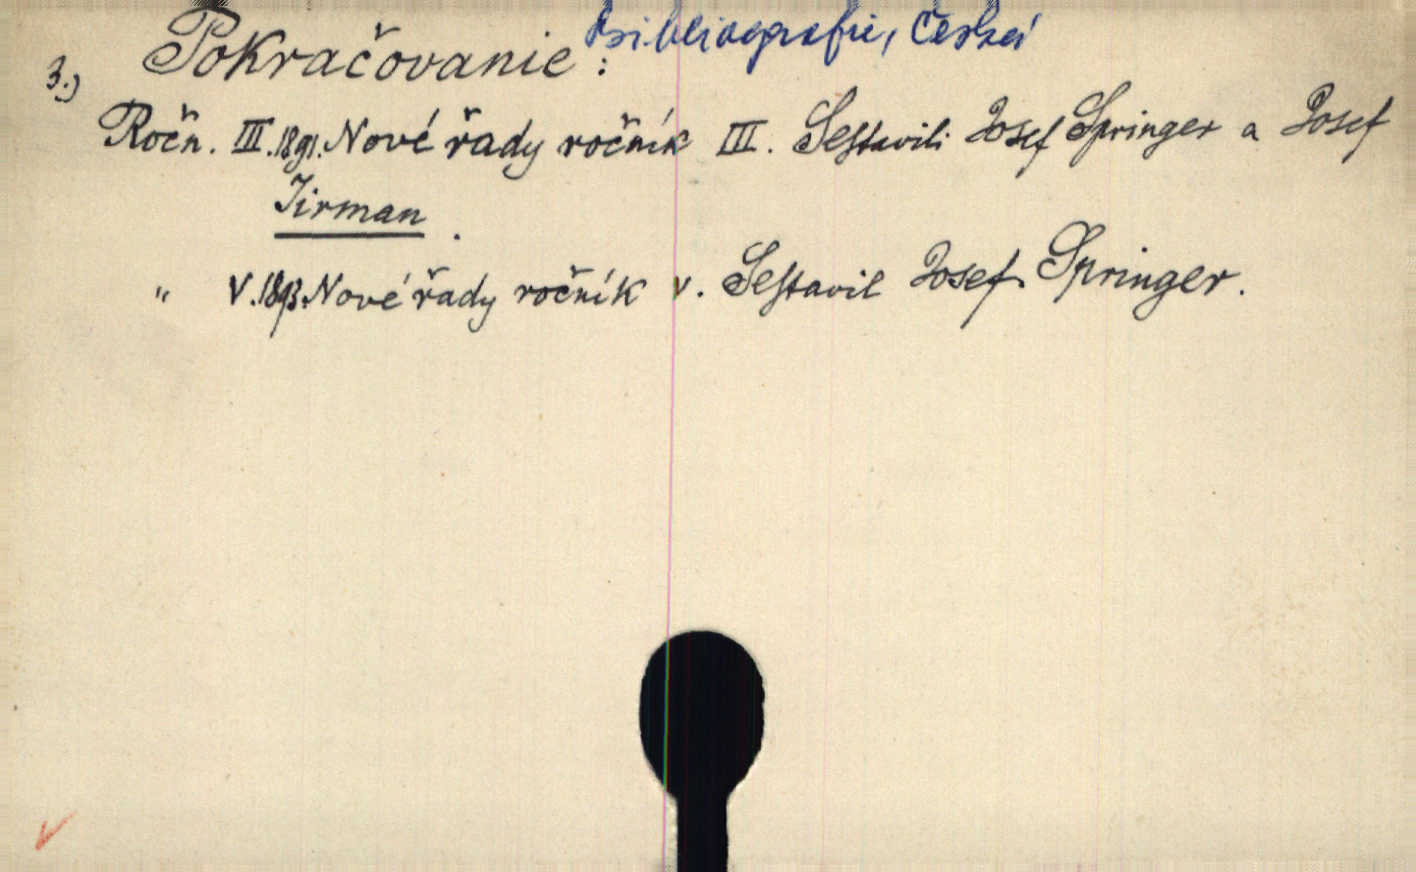 bibliografie, česká
3.) Pokračovanie :
Ročn. III. 1891. Nové řady ročník III. Sestavili Josef Springer a Josef
Jirman.
" V. 1893. Nové řady ročník V. Sestavil Josef Springer.